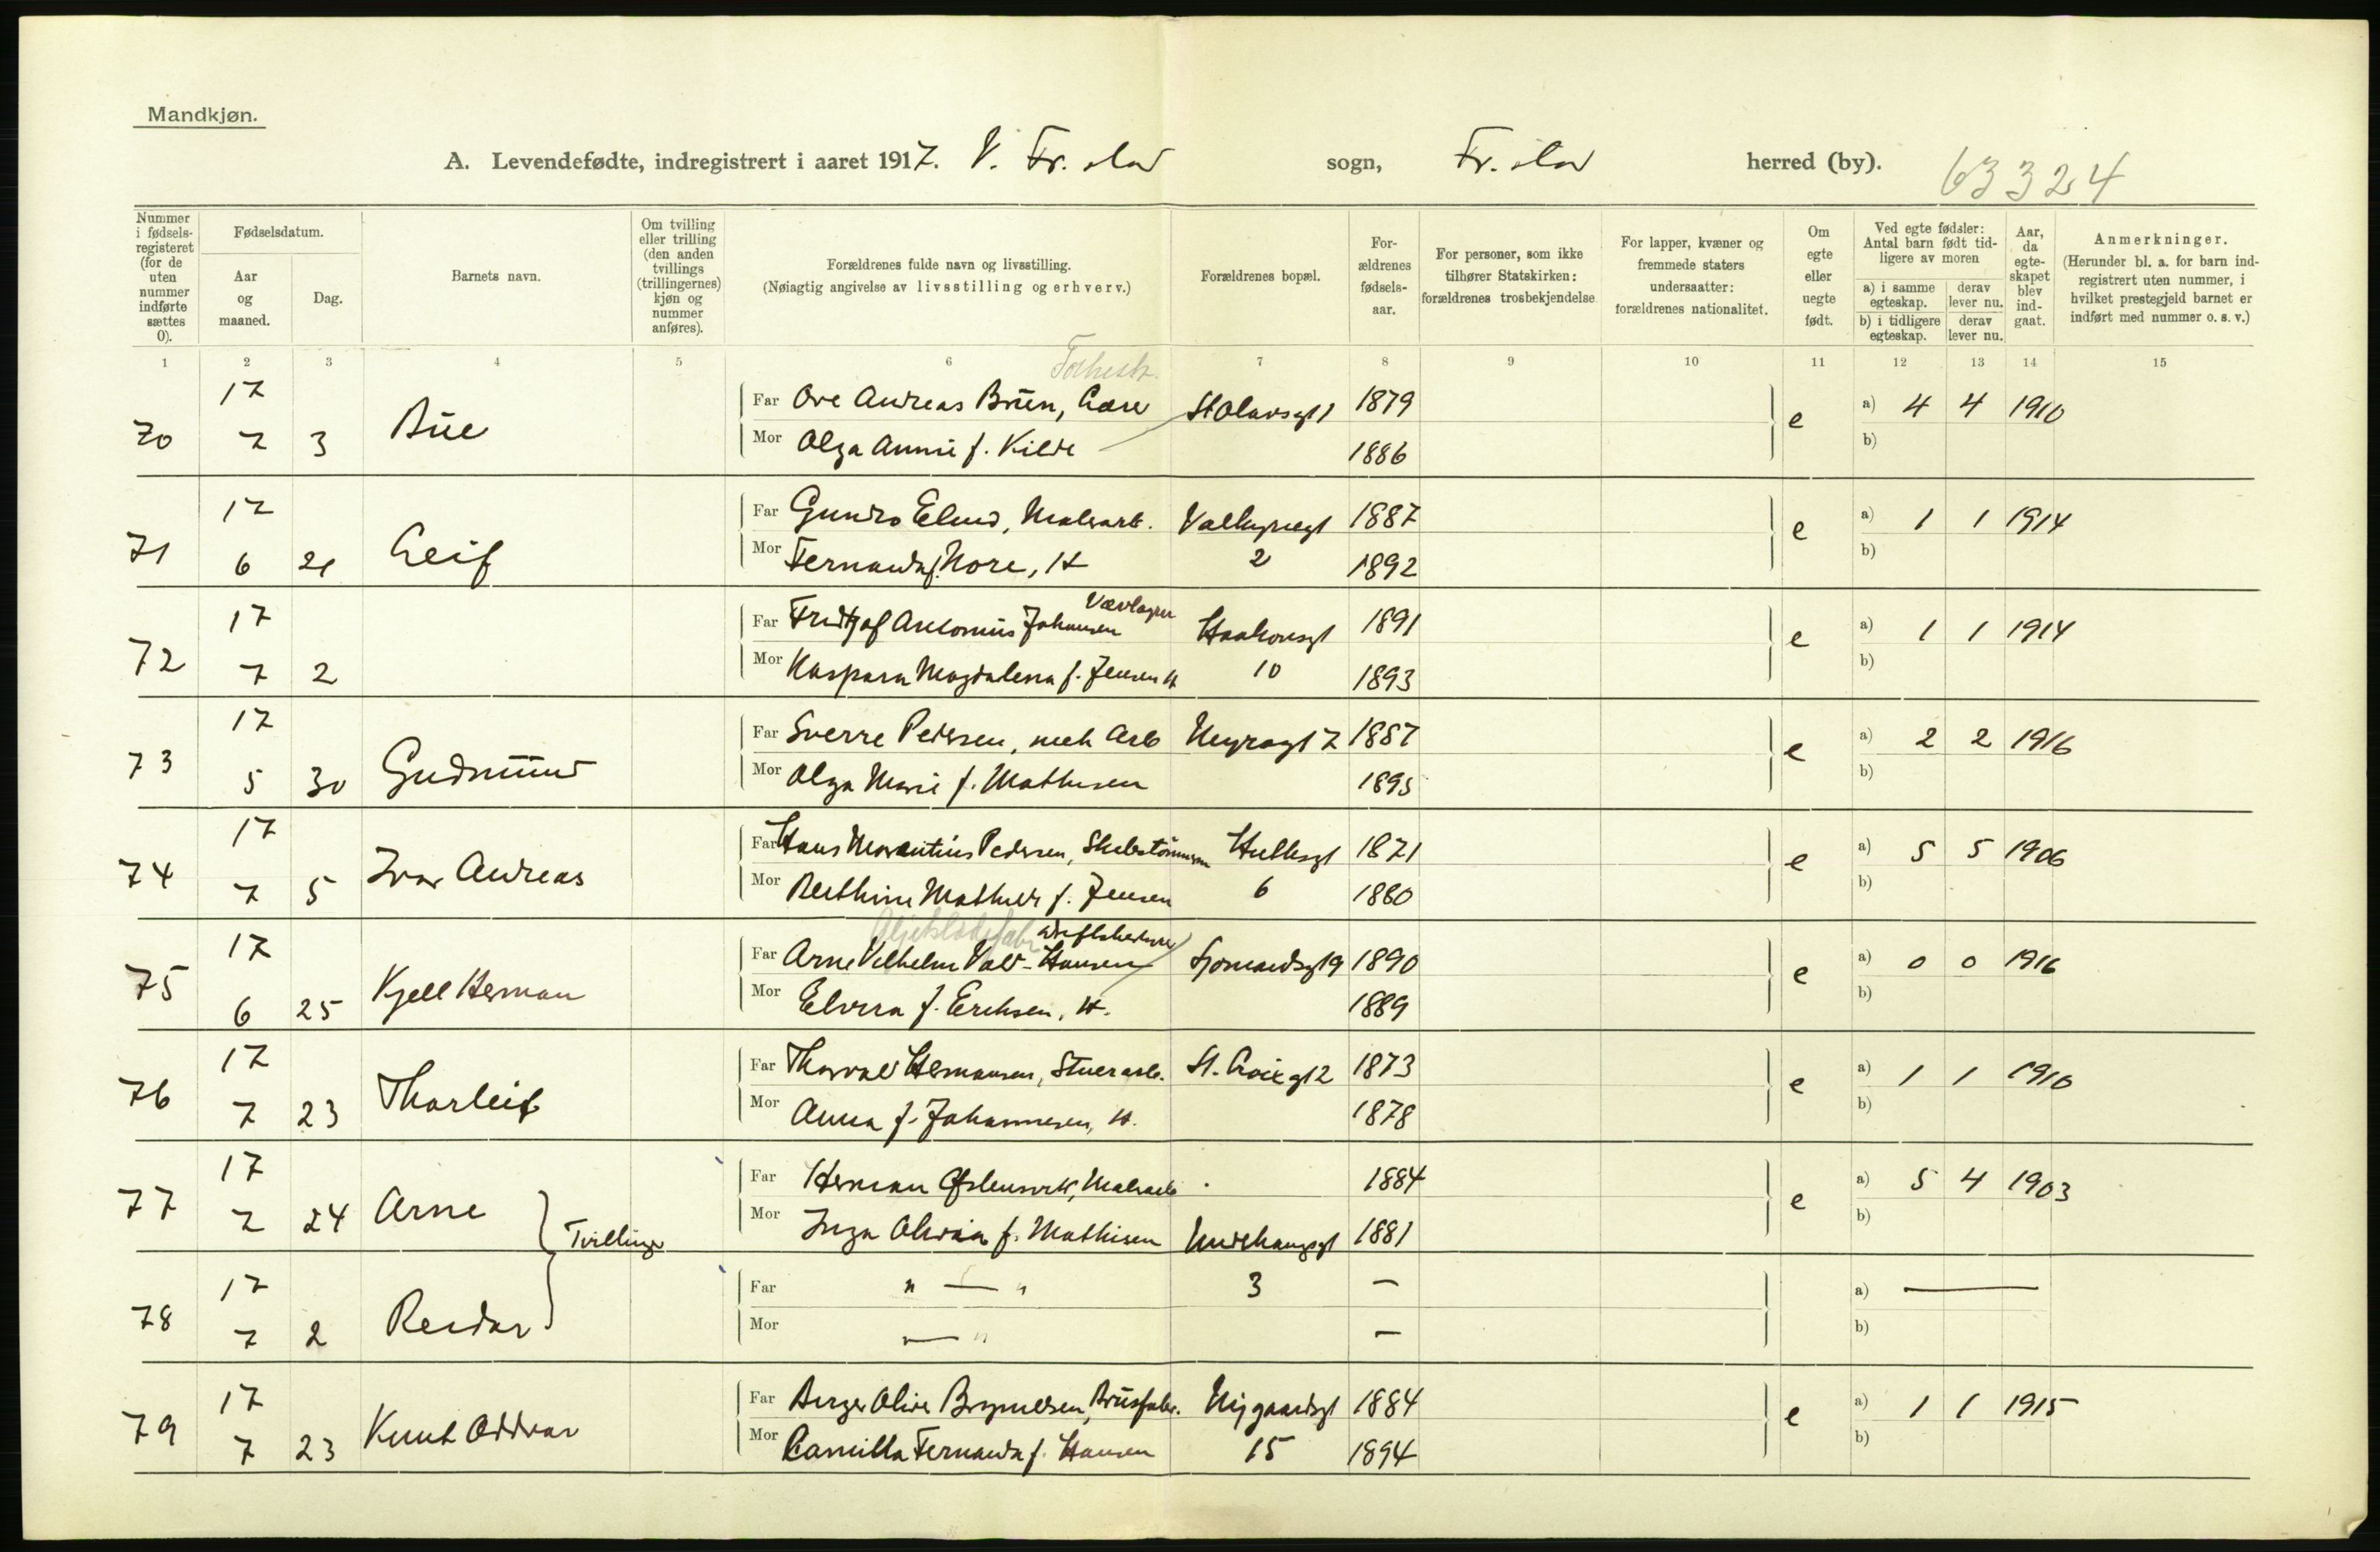 Mandkjøn.
A. Levendefødte, indregistrert i aaret 1917. V. Fr.stad sogn, Fr.stad herred (by). 63324
Nummer i fødselsregisteret (for de uten nummer indførte sættes 0).
Fødselsdatum.
Aar og maaned.
Dag.
Barnets navn.
Om tvilling eller trilling (den anden tvillings (trillingernes) kjøn og nummer anføres).
Forældrenes fulde navn og livsstilling.
(Nøiagtig angivelse av livsstilling og erhverv.)
Forældrenes bopæl.
Forældrenes fødselsaar.
For personer, som ikke tilhører Statskirken: forældrenes trosbekjendelse
For lapper, kvæner og fremmede staters undersaatter: forældrenes nationalitet.
Om egte eller uegte født.
Ved egte fødsler: Antal barn født tidligere av moren
a) i samme egteskap. derav lever nu.
b) i tidligere egteskap. derav lever nu.
Aar, da egteskapet blev indgaat.
Anmerkninger.
(Herunder bl. a. for barn indregistrert uten nummer, i hvilket prestegjeld barnet er indført med nummer o. s. v.)
1 2 3 4 5 6 7 8 9 10 11 12 13 14 15
17 Far Ove Andreas Bruen, St Olavsgt 1 1879 e a) 4 4 1910
70 7 3 Mor Olga Annie f. Kilde 1886 b)
17 Far Gundro Elind, Malerarb. Valkyriegt 1887 e a) 1 1 1914
71 6 21 Leif Mor Fernanda f. Nore, H 2 1892 b)
17 Far Fridtjof Antonius Johansen Haakonsgt 1891 e a) 1 1 1914
72 7 2 Mor Kaspara Magdalena f. Jensen H 10 1893 b)
17 Far Sverre Pedersen, mek Arb Nygaogt 7 1887 e a) 2 2 1916
73 5 30 Gudmund Mor Olga Marie f. Mathisen 1895 b)
17 Far Hans Marentius Pedersen, Skibstømmerm 1871 e a) 5 5 1906
74 7 5 Ivar Andreas Mor Berthine Mathilde f. Jensen 6 1880 b)
17 Far Arne Vilhelm Vald-Hansen 1890 e a) 0 0 1916
75 6 25 Kjell Herman Mor Elvira f. Erichsen, H. 1889 b)
17 Far Thorvald Hermansen, Stuerarb. St. Croixgt 2 1873 e a) 1 1 1910
76 7 23 Thorleif Mor Anna f. Johannesen, H. 1878 b)
17 Far Herman Malerarb 1884 e a) 5 4 1903
77 7 24 Arne Tvillinger Mor Inga Olivia f. Mathisen 1881 b)
17 Far " — " 3 — a) —
78 7 2 Reidar Mor — " — b)
17 Far Birger Oliver Brynildsen, Brusfabr. Nygaardsgt 1884 e a) 1 1 1915
79 7 23 Knut Oddvar Mor Camilla Fernanda f. Hansen 15 1894 b)